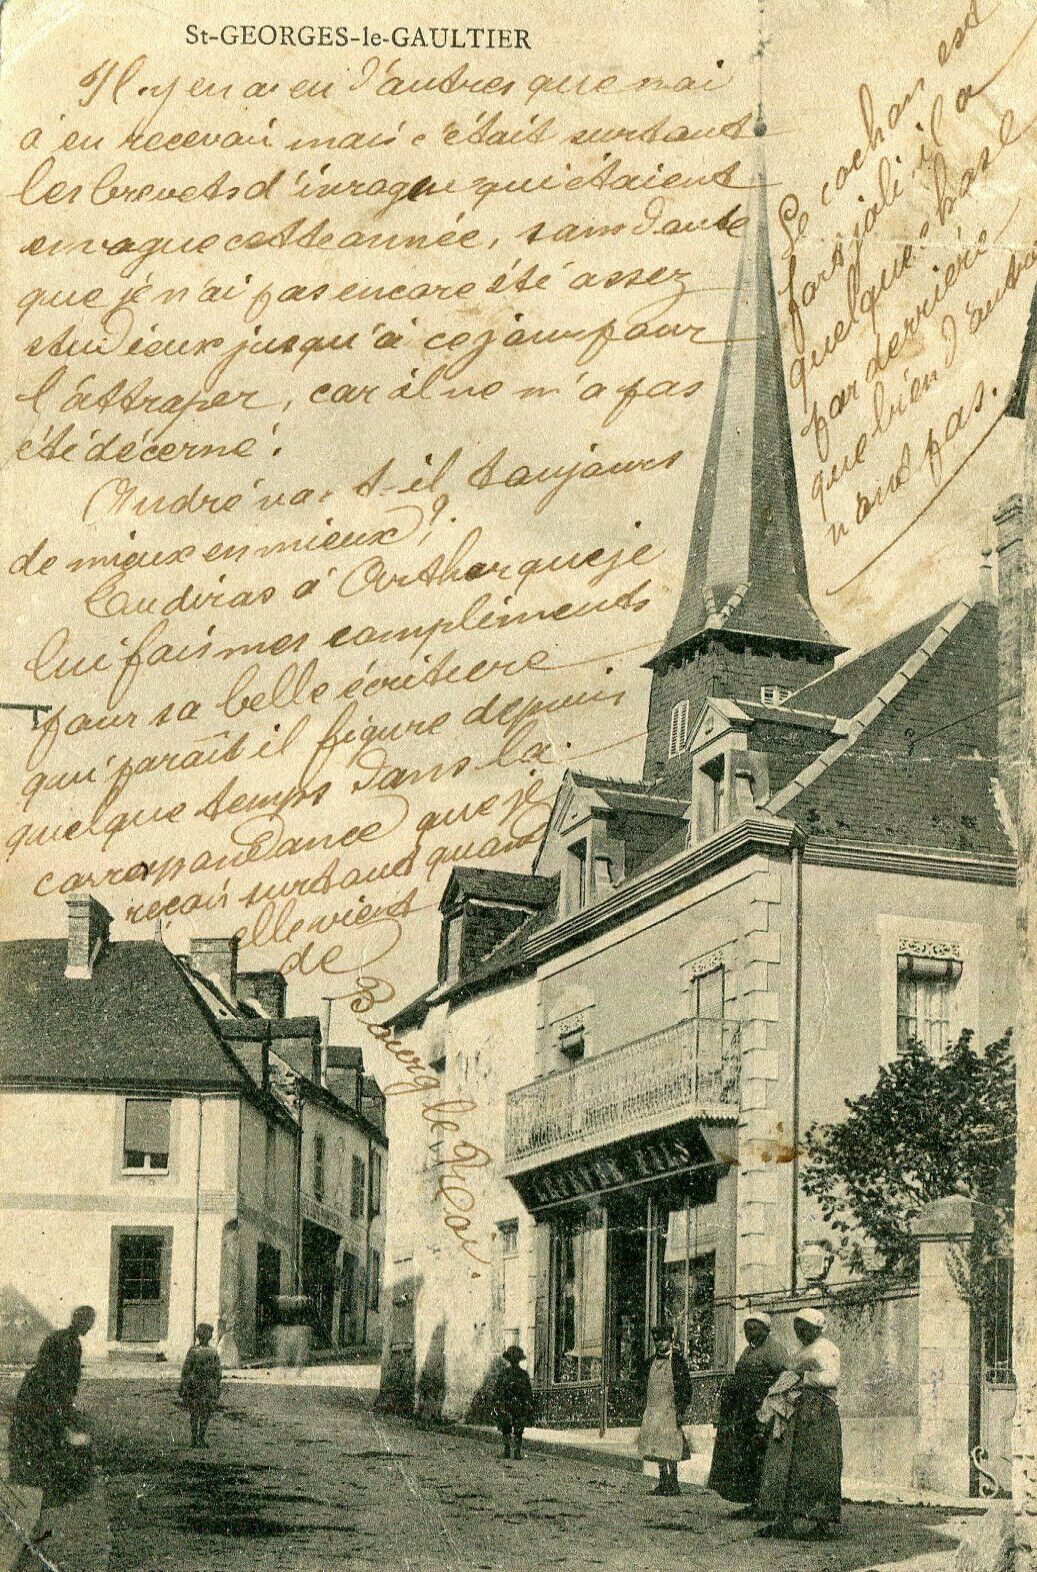 St-GEORGES-le-GAULTIER
Il y en a eu d'autres que moi
à en recevoir mais c'était surtout
les brevets d'ivrogne qui étaient
en vogue cette année, sans doute
que je n'ai pas encore été assez
studieux jusqu'à ce jour pour
l'attraper, car il ne m'a pas
été décerné.
André va-t-il toujours
de mieux en mieux?
Tu diras à Arthur que je
lui fais mes compliments
pour sa belle écriture
qui paraît il figure depuis
quelque temps dans la
correspondance que je
reçois surtout quand
elle vient
de Bourg le Roi.
Le cochon est
fort joli il a
quelque chose
par derrière
que bien d'autres
n'ont pas.
FILS